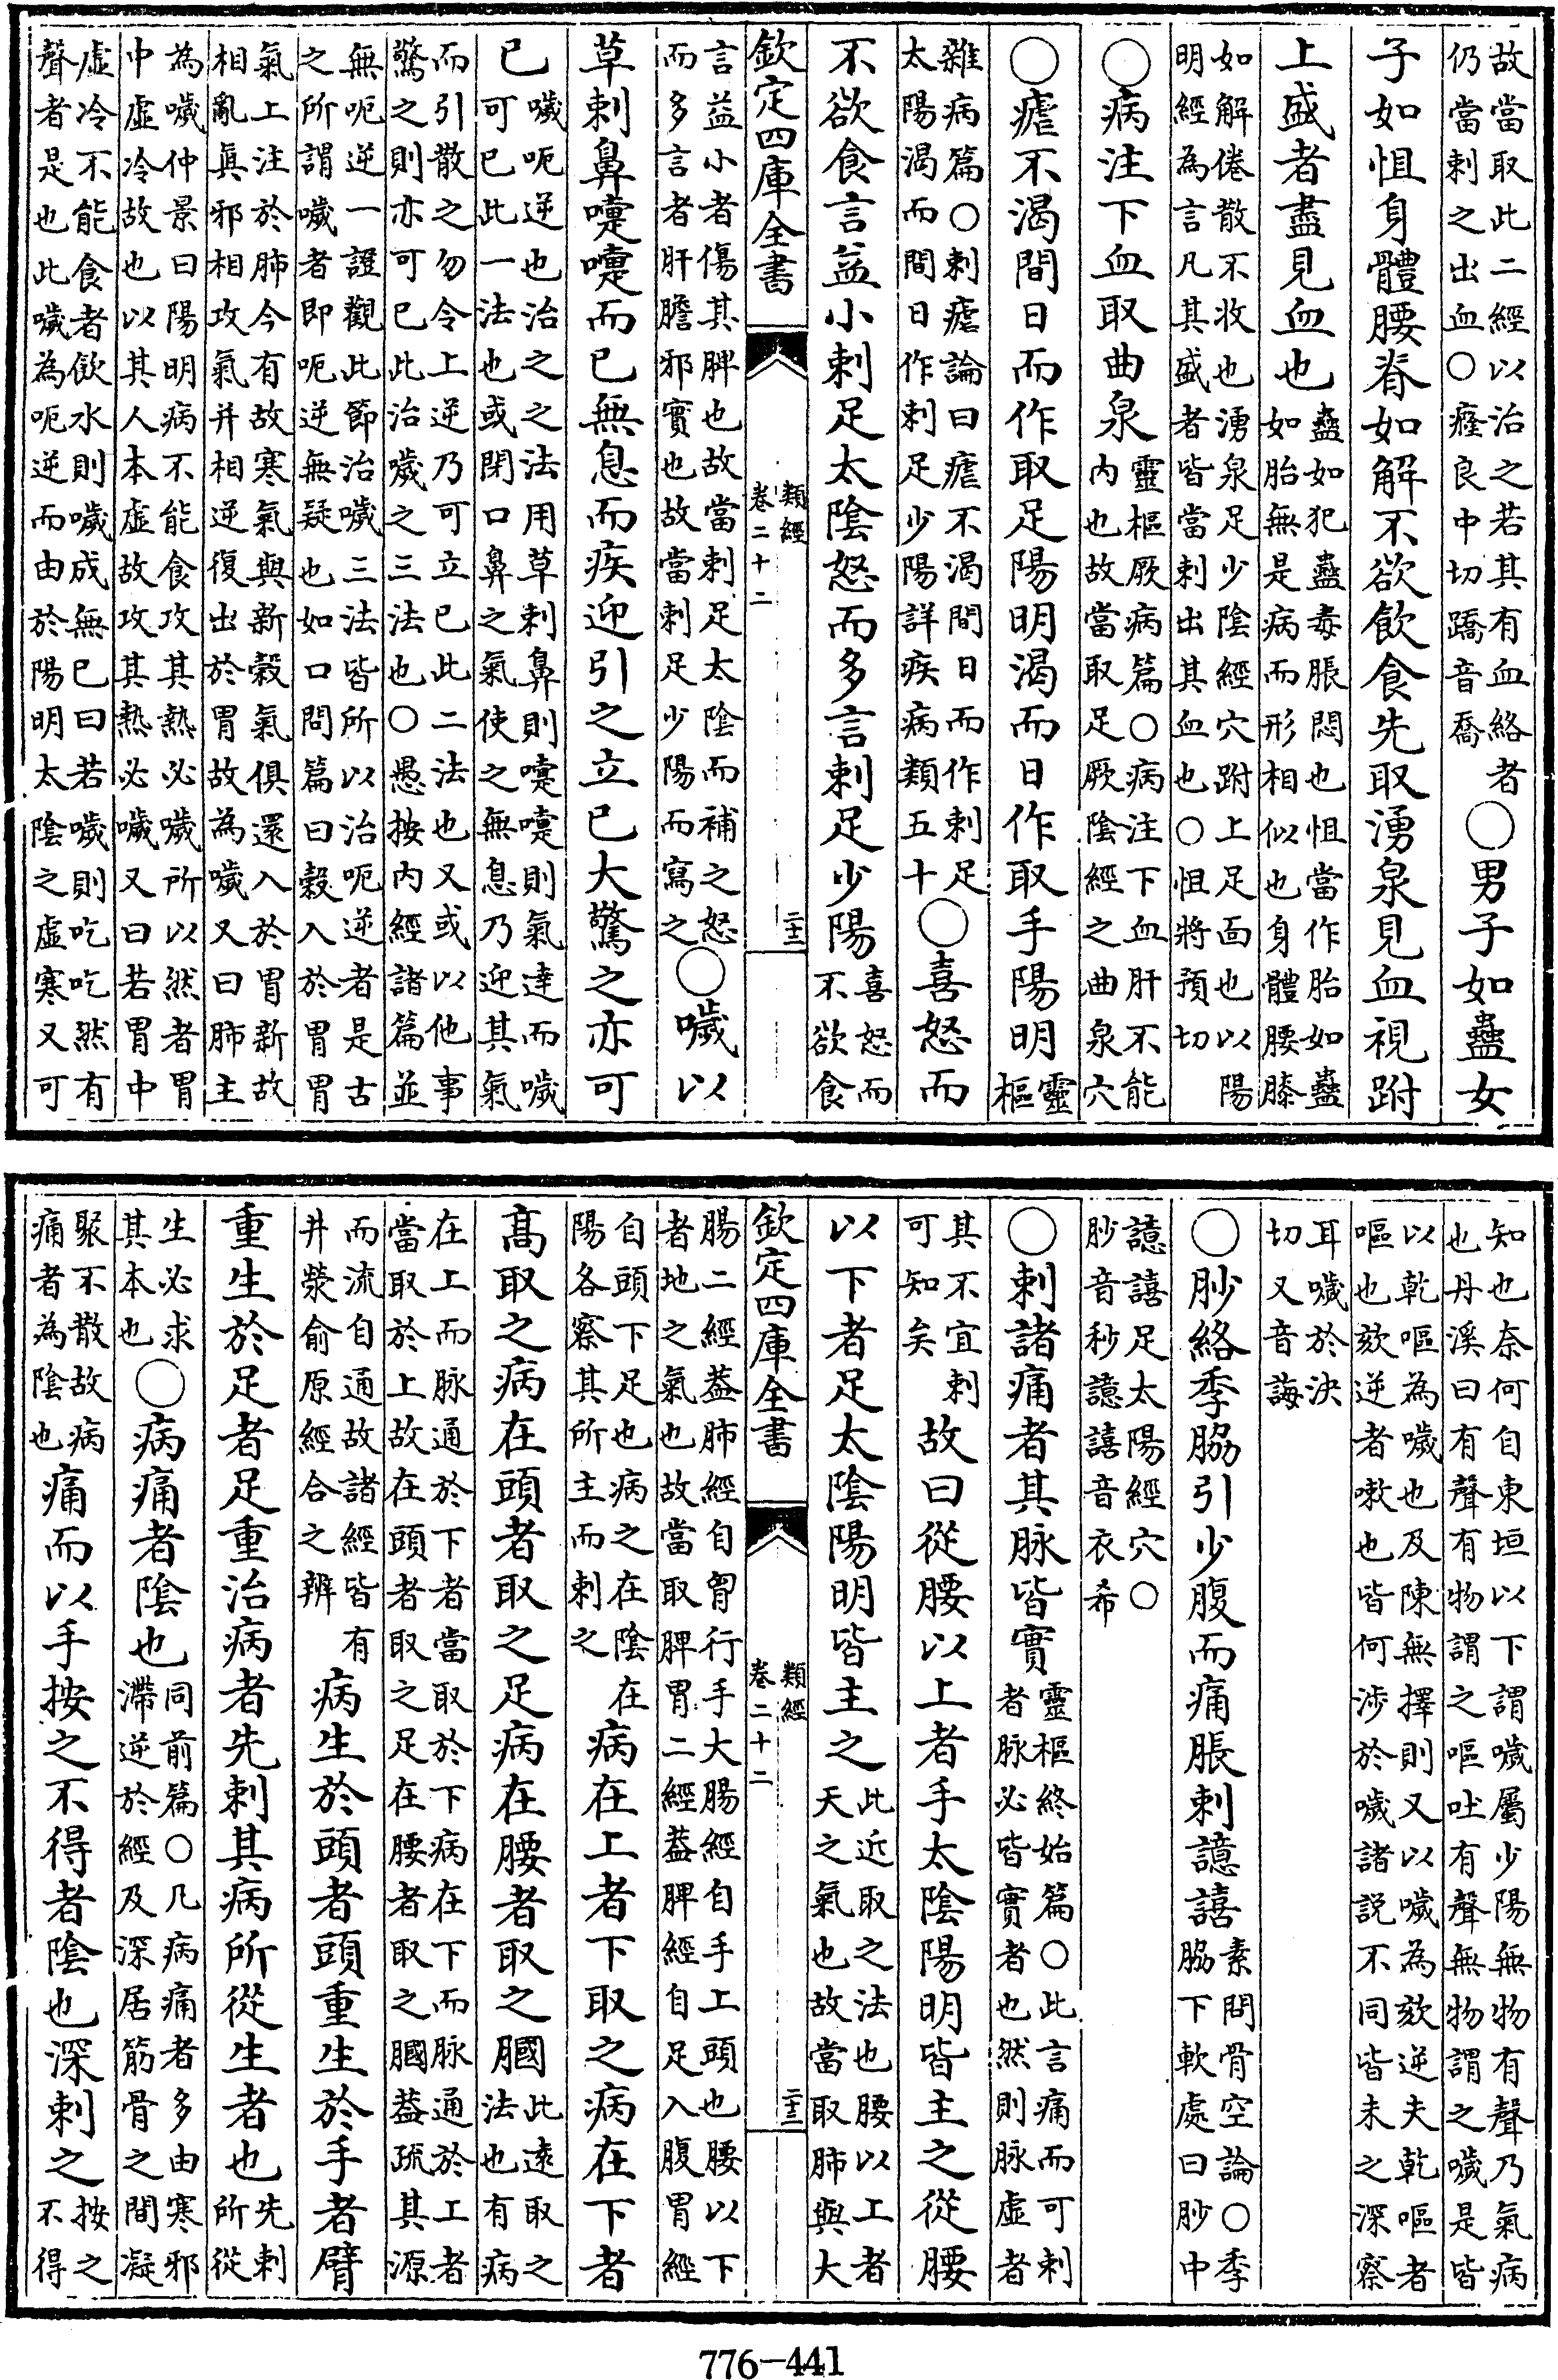 故當取此二經以治之若其有血絡者
仍當刺之出血○癃良中切蹻音喬
○男子如蠱女
子如怚身體腰脊如解不欲飲食先取湧泉見血視跗
上盛者盡見血也
蠱如犯蠱毒脹悶也怚當作胎如蠱
如胎無是病而形相似也身體腰膝
如解倦散不收也湧泉足少陰經穴跗上足面也以陽
明經為言凡其盛者皆當刺出其血也○怚將預切
○病注下血取曲泉
靈樞厥病篇○病注下血肝不能
内也故當取足厥陰經之曲泉穴
○瘧不渴間日而作取足陽明渴而日作取手陽明
靈
樞
雜病篇○刺瘧論曰瘧不渴間日而作刺足
太陽渴而間日作刺足少陽詳疾病類五十
○喜怒而
不欲食言益小刺足太陰怒而多言刺足少陽
喜怒而
不欲食
欽定四庫全書
類經
卷二十二
二十二
言益小者傷其脾也故當刺足太陰而補之怒
而多言者肝膽邪實也故當刺足少陽而寫之
○噦以
草刺鼻嚏嚏而已無息而疾迎引之立已大驚之亦可
已
噦呃逆也治之之法用草刺鼻則嚏嚏則氣達而噦
可已此一法也或閉口鼻之氣使之無息乃迎其氣
而引散之勿令上逆乃可立已此二法也又或以他事
驚之則亦可已此治噦之三法也○愚按内經諸篇並
無呃逆一證觀此節治噦三法皆所以治呃逆者是古
之所謂噦者即呃逆無疑也如口問篇曰穀入於胃胃
氣上注於肺今有故寒氣與新穀氣俱還入於胃新故
相亂眞邪相攻氣并相逆復出於胃故為噦又曰肺主
為噦仲景曰陽明病不能食攻其熱必噦所以然者胃
中虛冷故也以其人本虛故攻其熱必噦又曰若胃中
虛冷不能食者飲水則噦成無已曰若噦則吃吃然有
聲者是也此噦為呃逆而由於陽明太陰之虛寒又可
知也奈何自東垣以下謂噦屬少陽無物有聲乃氣病
也丹溪曰有聲有物謂之嘔吐有聲無物謂之噦是皆
以乾嘔為噦也及陳無擇則又以噦為欬逆夫乾嘔者
嘔也欬逆者嗽也皆何涉於噦諸説不同皆未之深察
耳噦於決
切又音誨
○䏚絡季脇引少腹而痛脹刺譩譆
素問骨空論○季
脇下軟處曰䏚中
譩譆足太陽經穴○
䏚音秒譩譆音衣希
○刺諸痛者其脉皆實
靈樞終始篇○此言痛而可刺
者脉必皆實者也然則脉虛者
其不宜刺
可知矣
故曰從腰以上者手太陰陽明皆主之從腰
以下者足太陰陽明皆主之
此近取之法也腰以上者
天之氣也故當取肺與大
欽定四庫全書
類經
卷二十二
二十三
腸二經葢肺經自胷行手大腸經自手上頭也腰以下
者地之氣也故當取脾胃二經葢脾經自足入腹胃經
自頭下足也病之在陰在
陽各察其所主而刺之
病在上者下取之病在下者
高取之病在頭者取之足病在腰者取之膕
此遠取之
法也有病
在上而脉通於下者當取於下病在下而脉通於上者
當取於上故在頭者取之足在腰者取之膕葢疏其源
而流自通故諸經皆有
井滎俞原經合之辨
病生於頭者頭重生於手者臂
重生於足者足重治病者先刺其病所從生者也
先刺
所從
生必求
其本也
○病痛者陰也
同前篇○凡病痛者多由寒邪
滯逆於經及深居筋骨之間凝
聚不散故病
痛者為陰也
痛而以手按之不得者陰也深刺之
按之
不得
776-441